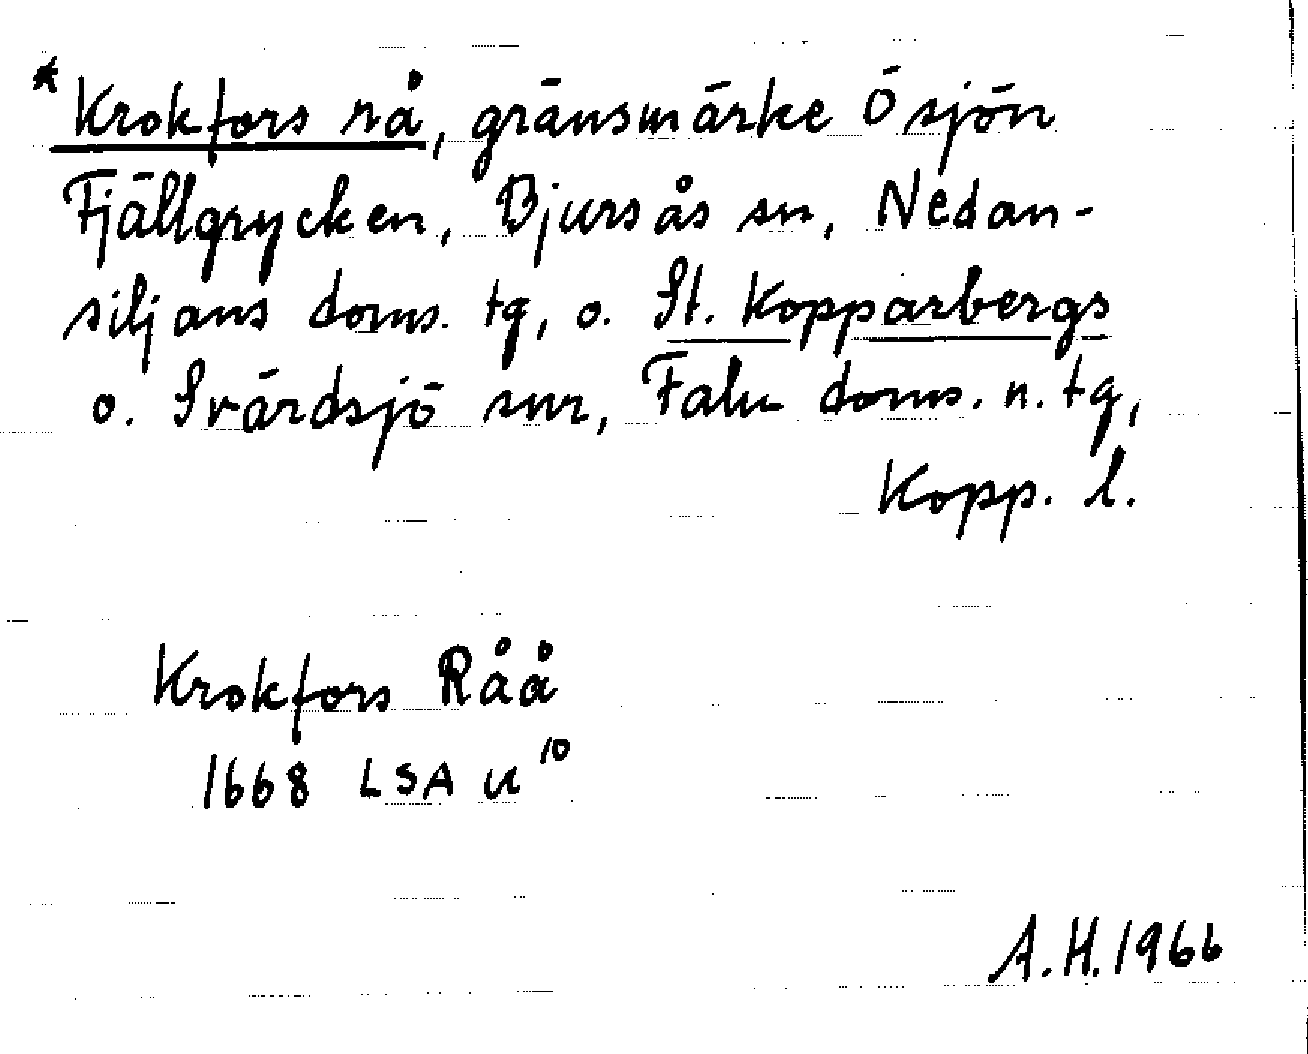 * Krokfors rå, gränsmärke Ö sjön
Fjällgrycken, Bjursås sn, Nedan-
siljans doms. tg, o. St. Kopparbergs
o. Svärdsjö snr, Falu doms. n. tg,
Kopp. l.
Krokfors Råå
1668 LSA u 10
A.H. 1966